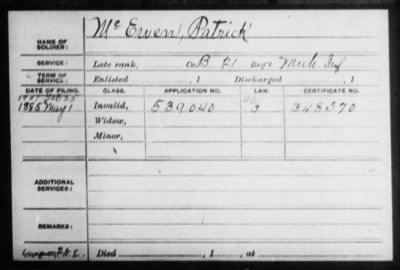 NAME OF SOLDIER: Mc Erven, Patrick
SERVICE: Late rank, Co. B 21 Reg't Mich Inf
TERM OF SERVICE: Enlisted , 1 Discharged , 1
DATE OF FILING. CLASS. APPLICATION NO. LAW. CERTIFICATE NO.
1885 May 1 Invalid, 539040 348570
Widow,
Minor,
ADDITIONAL SERVICES:
REMARKS:
Died , 1 , at